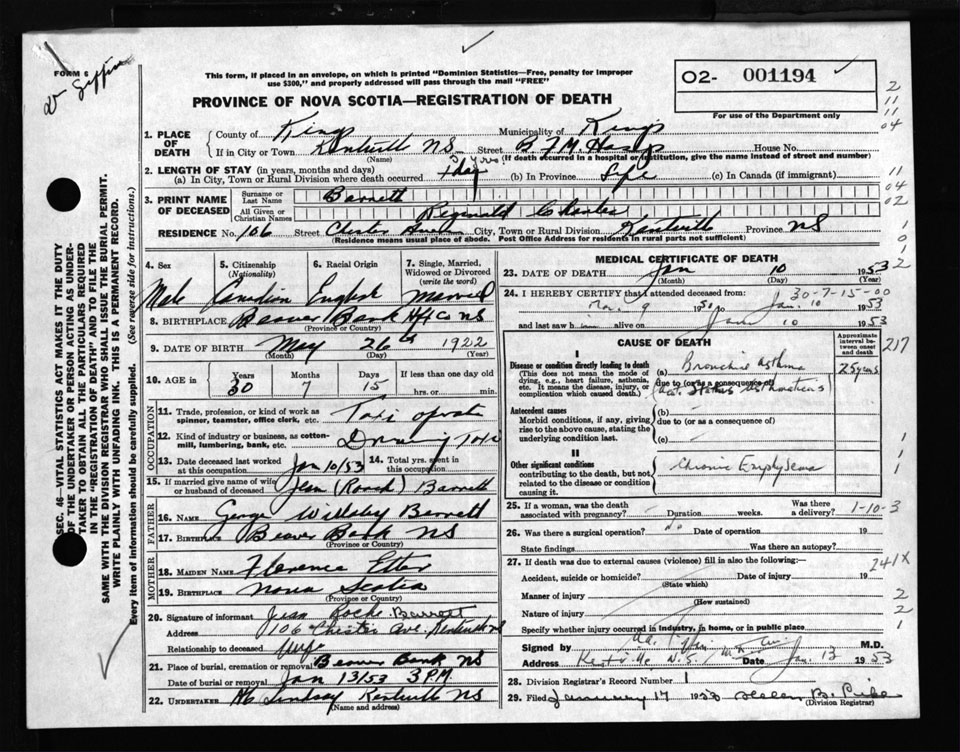 FORM 6
Dr Giffin
This form, if placed in an envelope, on which is printed "Dominion Statistics—Free, penalty for improper
use $300," and properly addressed will pass through the mail "FREE"
PROVINCE OF NOVA SCOTIA—REGISTRATION OF DEATH
O2- 001194
For use of the Department only
SEC. 46—VITAL STATISTICS ACT MAKES IT THE DUTY
OF THE UNDERTAKER OR PERSON ACTING AS UNDER-
TAKER TO OBTAIN ALL THE PARTICULARS REQUIRED
IN THE "REGISTRATION OF DEATH" AND TO FILE THE
SAME WITH THE DIVISION REGISTRAR WHO SHALL ISSUE THE BURIAL PERMIT.
WRITE PLAINLY WITH UNFADING INK. THIS IS A PERMANENT RECORD.
Every item of information should be carefully supplied. (See reverse side for instructions.)
1. PLACE OF DEATH County of Kings Municipality of Kings
If in City or Town Kentville NS Street B.F.M. Hosp House No.
(Name) (If death occurred in a hospital or institution, give the name instead of street and number)
2. LENGTH OF STAY (in years, months and days)
(a) In City, Town or Rural Division where death occurred 1 day (b) In Province Life (c) In Canada (if immigrant)
3. PRINT NAME OF DECEASED Surname or Last Name Barrett
All Given or Christian Names Reginald Charles
RESIDENCE No. 106 Street Chester Avenue City, Town or Rural Division Kentville Province NS
(Residence means usual place of abode. Post Office Address for residents in rural parts not sufficient)
4. Sex 5. Citizenship (Nationality) 6. Racial Origin 7. Single, Married, Widowed or Divorced (write the word)
Male Canadian English Married
8. BIRTHPLACE Beaver Bank Hfx Co NS
(Province or Country)
9. DATE OF BIRTH May 26th 1922
(Month) (Day) (Year)
10. AGE in Years 30 Months 7 Days 15 If less than one day hrs. or min.
OCCUPATION
11. Trade, profession, or kind of work as spinner, teamster, office clerk, etc. Taxi operator
12. Kind of industry or business, as cotton-mill, lumbering, bank, etc. Driving Taxi
13. Date deceased last worked at this occupation Jan 10/53 14. Total yrs. spent in this occupation
15. If married give name of wife or husband of deceased Jean (Roach) Barrett
FATHER
16. NAME George Willoby Barrett
17. Birthplace Beaver Bank NS
(Province or Country)
MOTHER
18. MAIDEN NAME Florence Etter
19. BIRTHPLACE Nova Scotia
(Province or Country)
20. Signature of informant Jean Roche Barrett
Address 106 Chester Ave. Kentville NS
Relationship to deceased Wife
21. Place of burial, cremation or removal Beaver Bank NS
Date of burial or removal Jan 13/53 3 P.M.
22. UNDERTAKER Lindsay Kentville NS
(Name and address)
MEDICAL CERTIFICATE OF DEATH
23. DATE OF DEATH Jan 10 1953
(Month) (Day) (Year)
30-7-15-00
24. I HEREBY CERTIFY that I attended deceased from:
9 1950 to Jan. 10 1953
and last saw him alive on Jan 10 1953
CAUSE OF DEATH
Approximate interval between onset and death
217
I
Disease or condition directly leading to death
(This does not mean the mode of dying, e.g., heart failure, asthenia, etc. It means the disease, injury, or complication which caused death.)
(a) Bronchial Asthma 25 years
due to (or as a consequence of)
Status Asthmaticus
Antecedent causes
Morbid conditions, if any, giving rise to the above cause, stating the underlying condition last.
(b)
due to (or as a consequence of)
(c)
II
Other significant conditions
contributing to the death, but not related to the disease or condition causing it.
Chronic Emphysema
25. If a woman, was the death associated with pregnancy? Duration weeks. Was there a delivery? 1-10-3
26. Was there a surgical operation? No Date of operation 19
State findings Was there an autopsy?
27. If death was due to external causes (violence) fill in also the following:— 241X
Accident, suicide or homicide? Date of injury 19
(State which)
Manner of injury
(How sustained)
Nature of injury
Specify whether injury occurred in industry, in home, or in public place
Signed by Giffin M.D.
Address Kentville N.S. Date Jan. 13 1953
28. Division Registrar's Record Number 1
29. Filed January 17 1953 Helen B. Pike
(Division Registrar)